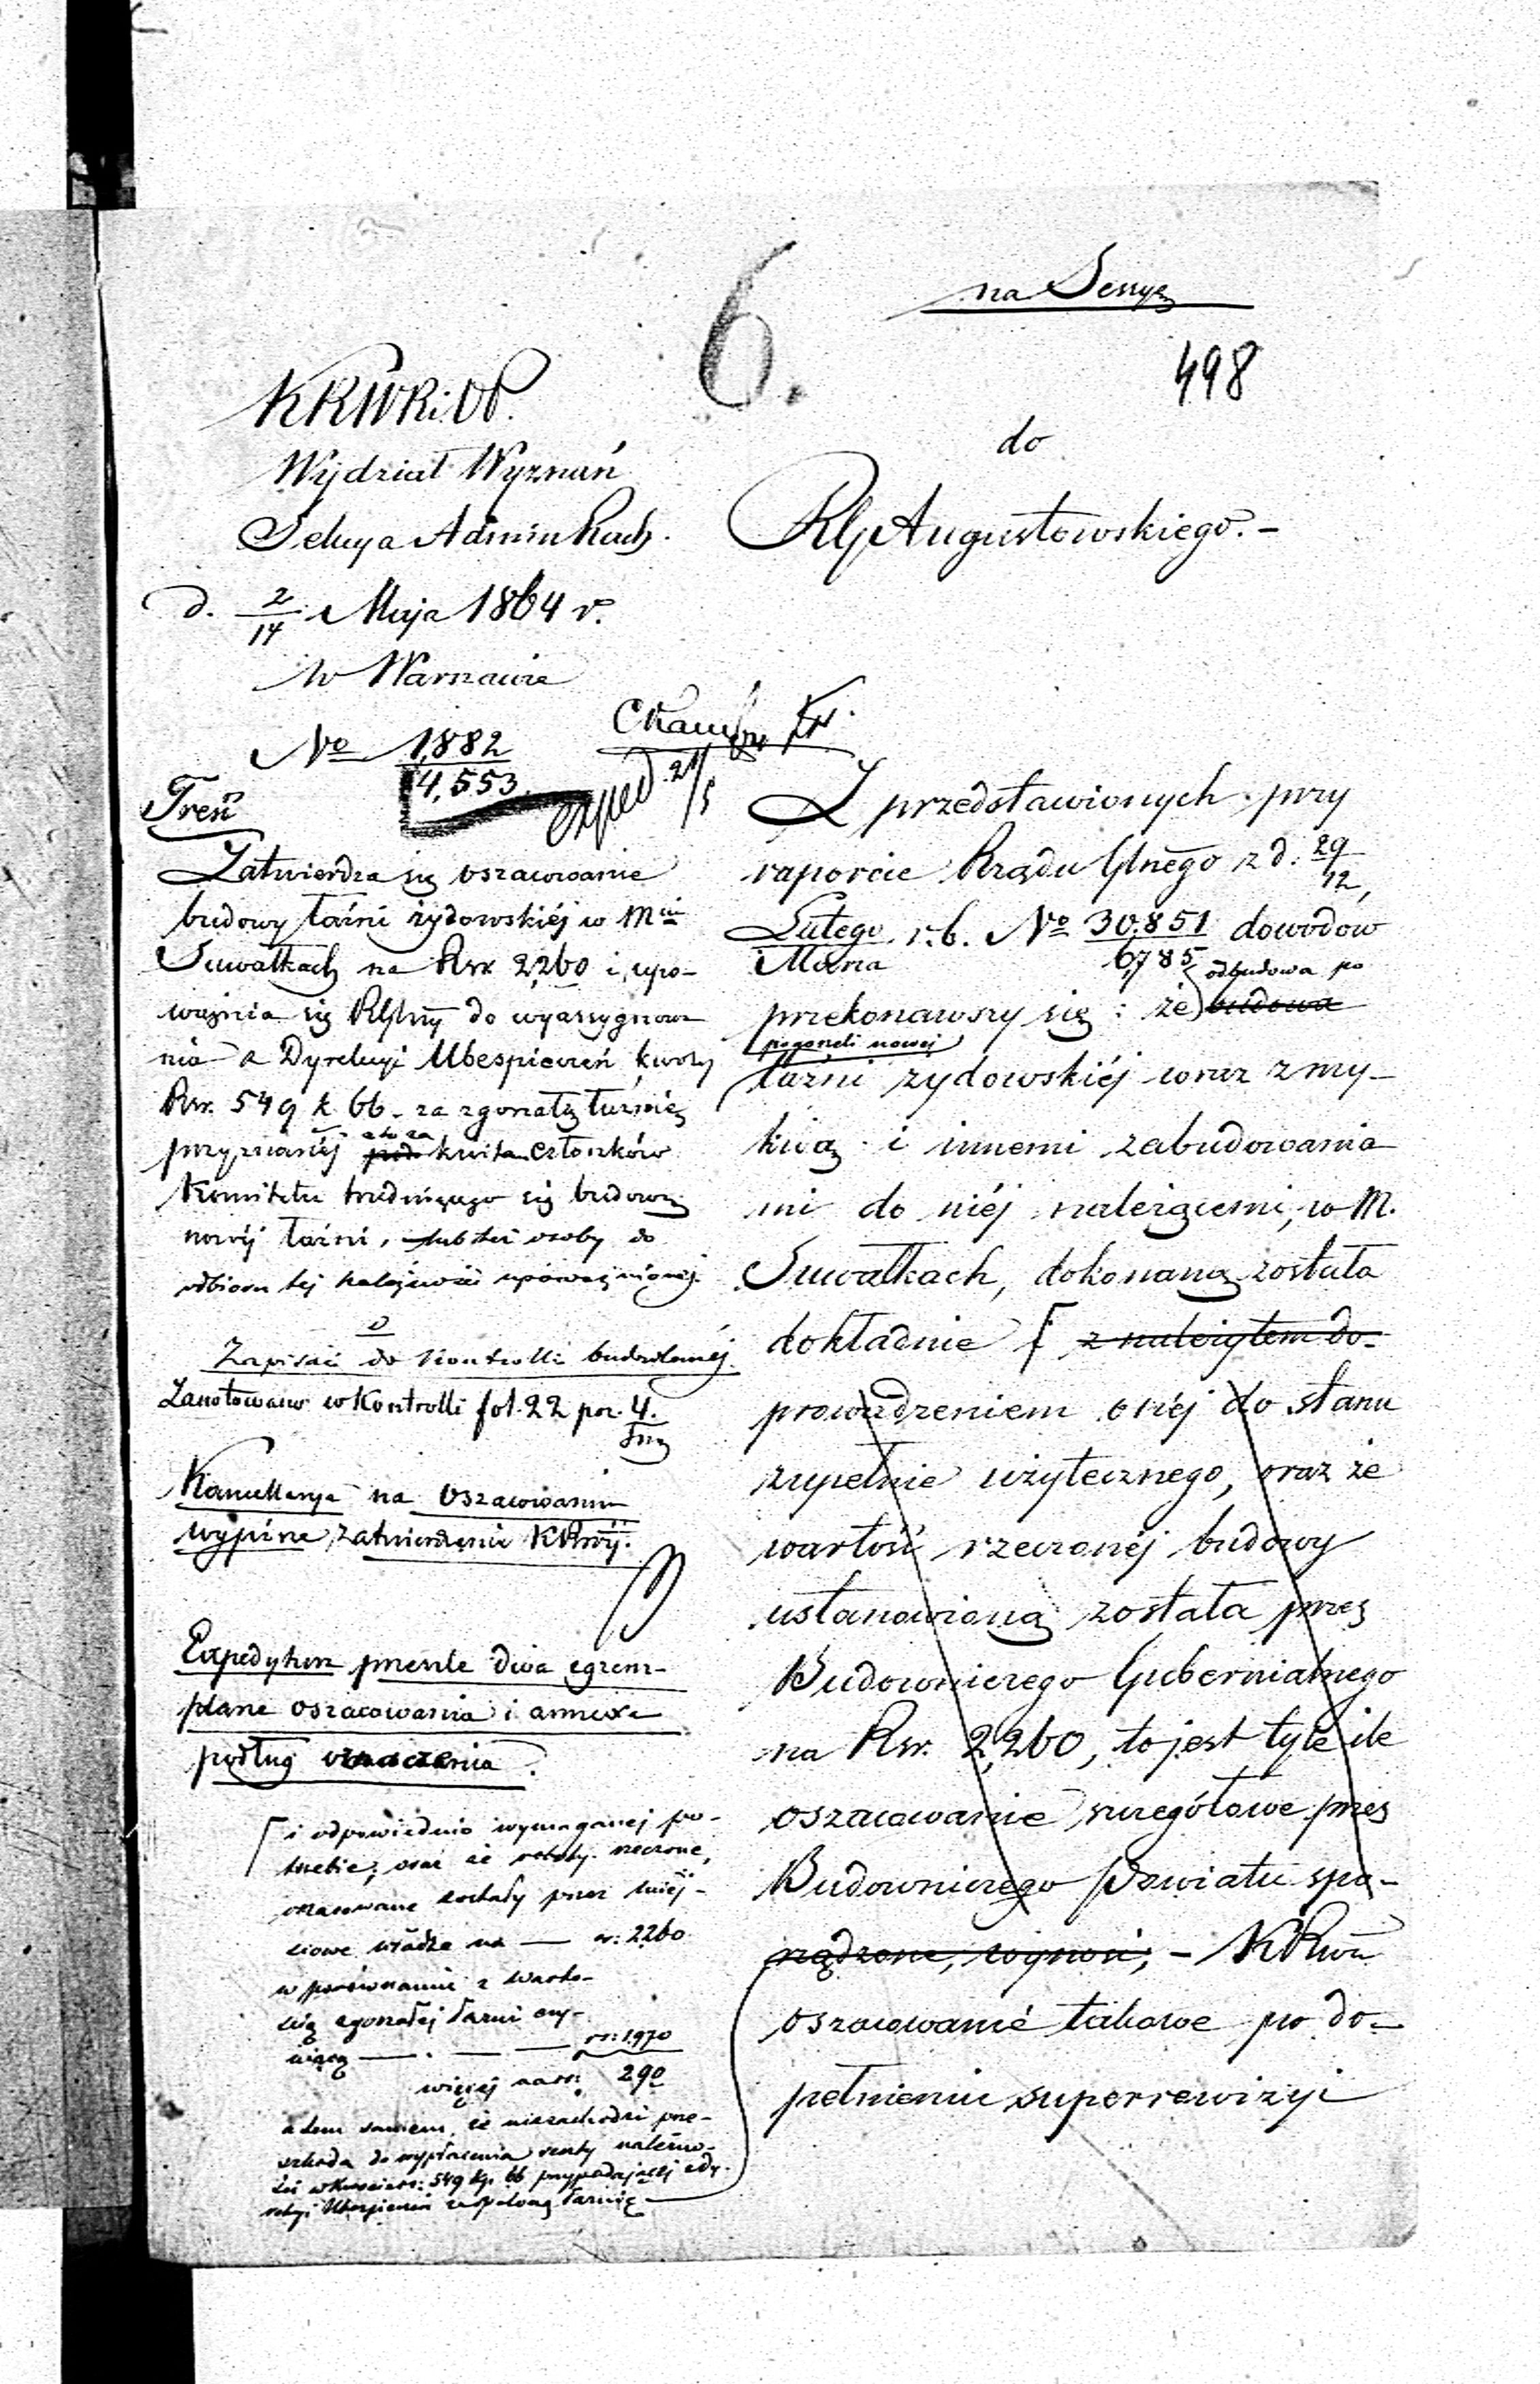 na Sessyą
6.
498
KRWRiOP.
Wydział Wyznań
Sekcya Admin Rach.
d. 2/14 Maja 1864 r.
w Warszawie
No 1,882
4,553
exped. 21/5
do
RGAugustowskiego.-
Treść
Zatwierdza się oszacowanie
budowy łaźni żydowskiéj w Mcie
Suwałkach na Rsr. 2,260 i upo-
ważnia się RGlny do wyassygnowa
nia z Dyrekcyi Ubespieczeń kwoty
Rsr. 549 k. 66 - za zgorzałą łaźnię
przyznanéj pod kwitem członków
Komitetu trudniącego się budową
nowéj łaźni, lub też osoby do
odbioru téj należności upoważnionéj.
Zapisać do Kontrolli budowlanéj.
Zanotowano w Kontrolli fol. 22 poz. 4.
Kancellarya na oszacowaniu
wypisze zatwierdzenie KRząd.
Expedytura prześle dwa egzem-
plarze oszacowania i annexa
podług oznaczenia.
[ i odpowiednio wymaganej po-
trzebie; oraz że roboty rzeczone,
oszacowane zostały przez miéj-
scowe władze na — rs: 2260
w porównaniu z warto-
ścią zgorzałej łaźni wy-
— . — — rs: 1970
więcej na rs: 290
a tem samem, że niezachodzi prze-
szkoda do wypłacenia reszty należno-
ści w kwocie rs: 549 kp. 66 przypadającéj z Dy-
rekcyi Ubezpieczeń za spaloną łaźnię —
Z przedstawionych przy
raporcie Rządu Glnego z d. 29/12,
Lutego/Marca r.b. No 30,851/6,785 dowodów
odbudowa po
przekonawszy się: że budowa
pogorzeli nowéj
łaźni żydowskiéj wraz z my-
kwą i innemi zabudowania
mi do niéj należącemi, w M.
Suwałkach, dokonaną została
dokładnie [ z należytem do-
prowadzeniem onéj do stanu
zupełnie użytecznego, oraz że
wartość rzeczonéj budowy
ustanowioną została przez
Budowniczego Gubernialnego
na Rsr. 2,260, to jest tyle ile
oszacowanie szczegółowe przez
Budowniczego Powiatu spo-
rządzone, wynosi, - KRząd.
oszacowanie takowe po do-
pełnieniu superrewizyi